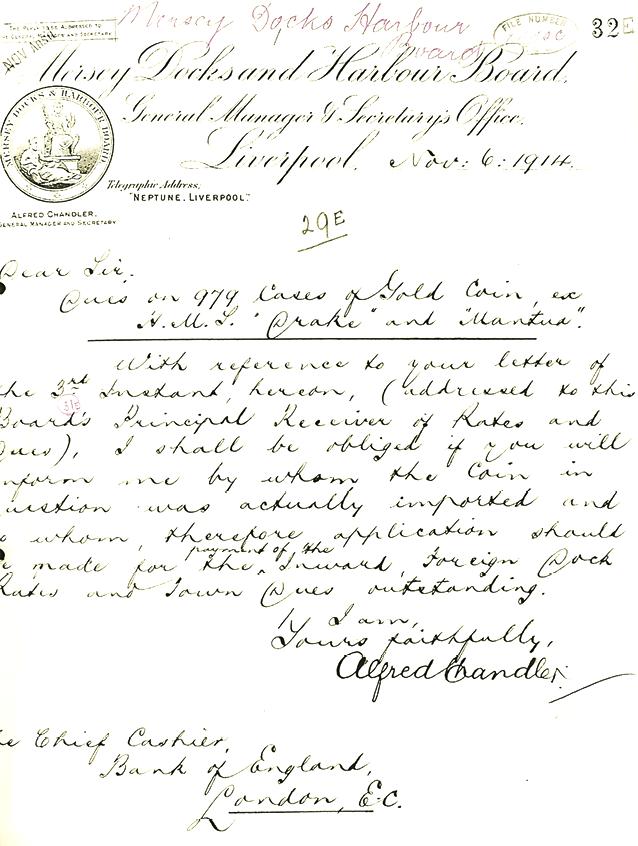 Mersey Docks Harbour
Board
FILE NUMBER
32E
NOV
Mersey Docks and Harbour Board,
General Manager & Secretary's Office,
Liverpool, Nov: 6: 1914.
MERSEY DOCKS & HARBOUR BOARD
Telegraphic Address,
"NEPTUNE, LIVERPOOL".
ALFRED CHANDLER,
GENERAL MANAGER AND SECRETARY
29E
Dear Sir.
Dues on 979 Cases of Gold Coin, ex
H.M.S. "Drake" and "Mantua".
With reference to your letter of
the 3rd Instant, hereon, (addressed to this
31E
Board's Principal Receiver of Rates and
Dues), I shall be obliged if you will
inform me by whom the Coin in
question was actually imported and
to whom, therefore application should
be made for the payment of the Inward, Foreign Dock
Rates and Town Dues outstanding.
I am,
Yours faithfully,
Alfred Chandler.
The Chief Cashier,
Bank of England,
London, E.C.